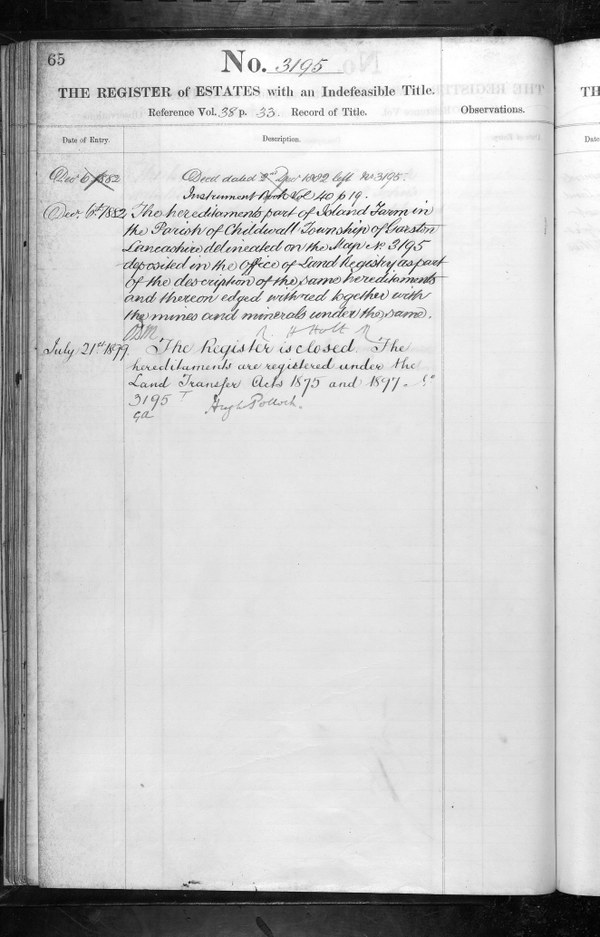 65
No. 3195
THE REGISTER of ESTATES with an Indefeasible Title.
Reference Vol. 38 p. 33. Record of Title.
Observations.
Date of Entry.
Description.
Dec 6 1882
Deed dated 2nd Dec 1882 left No 3195.
Instrument Book Vol 40 p 19.
Dec. 6th 1882
The hereditaments part of Island Farm in
the Parish of Childwall Township of Garston
Lancashire delineated on the Map No. 3195
deposited in the Office of Land Registry as part
of the description of the same hereditaments
and thereon edged with red together with
the mines and minerals under the same.
R. H Holt
July 21st 1899.
The Register is closed. The
hereditaments are registered under the
Land Transfer Acts 1875 and 1897.
3195
Hugh Pollock.
TH
Date